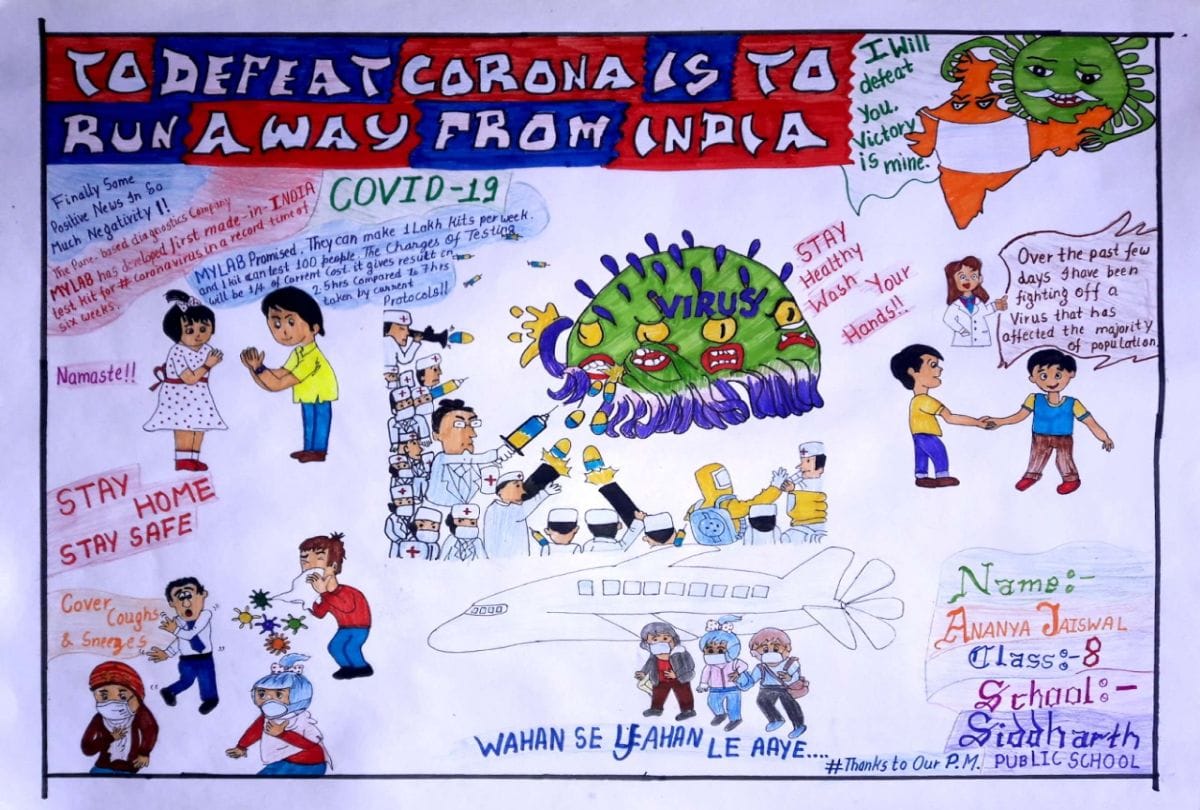 TO DEFEAT CORONA IS TO
RUN AWAY FROM INDIA
I Will
defeat
you.
Victory
is mine.
Finally Some
Positive News In So
Much Negativity !!
The Pune-based diagnostics Company
MYLAB has developed first made-in-INDIA
test kit for #coronavirus in a record time of
six weeks.
COVID-19
MYLAB Promised, They can make 1 Lakh kits per week.
and 1 kit can test 100 people. The Changes Of Testing
will be 1/4 of Current Cost. it gives result in
2.5 hrs Compared to 7 hrs
taken by current
Protocols!!
VIRUS
STAY
Healthy
Wash Your
Hands!!
Over the past few
days I have been
fighting off a
Virus that has
affected the majority
of population.
Namaste!!
STAY
HOME
STAY SAFE
Cover
Coughs
& Sneezes
WAHAN SE YEAHAN LE AAYE....
#Thanks to Our P.M.
Name:-
ANANYA JAISWAL
Class:-8
School:-
Siddharth
PUBLIC SCHOOL